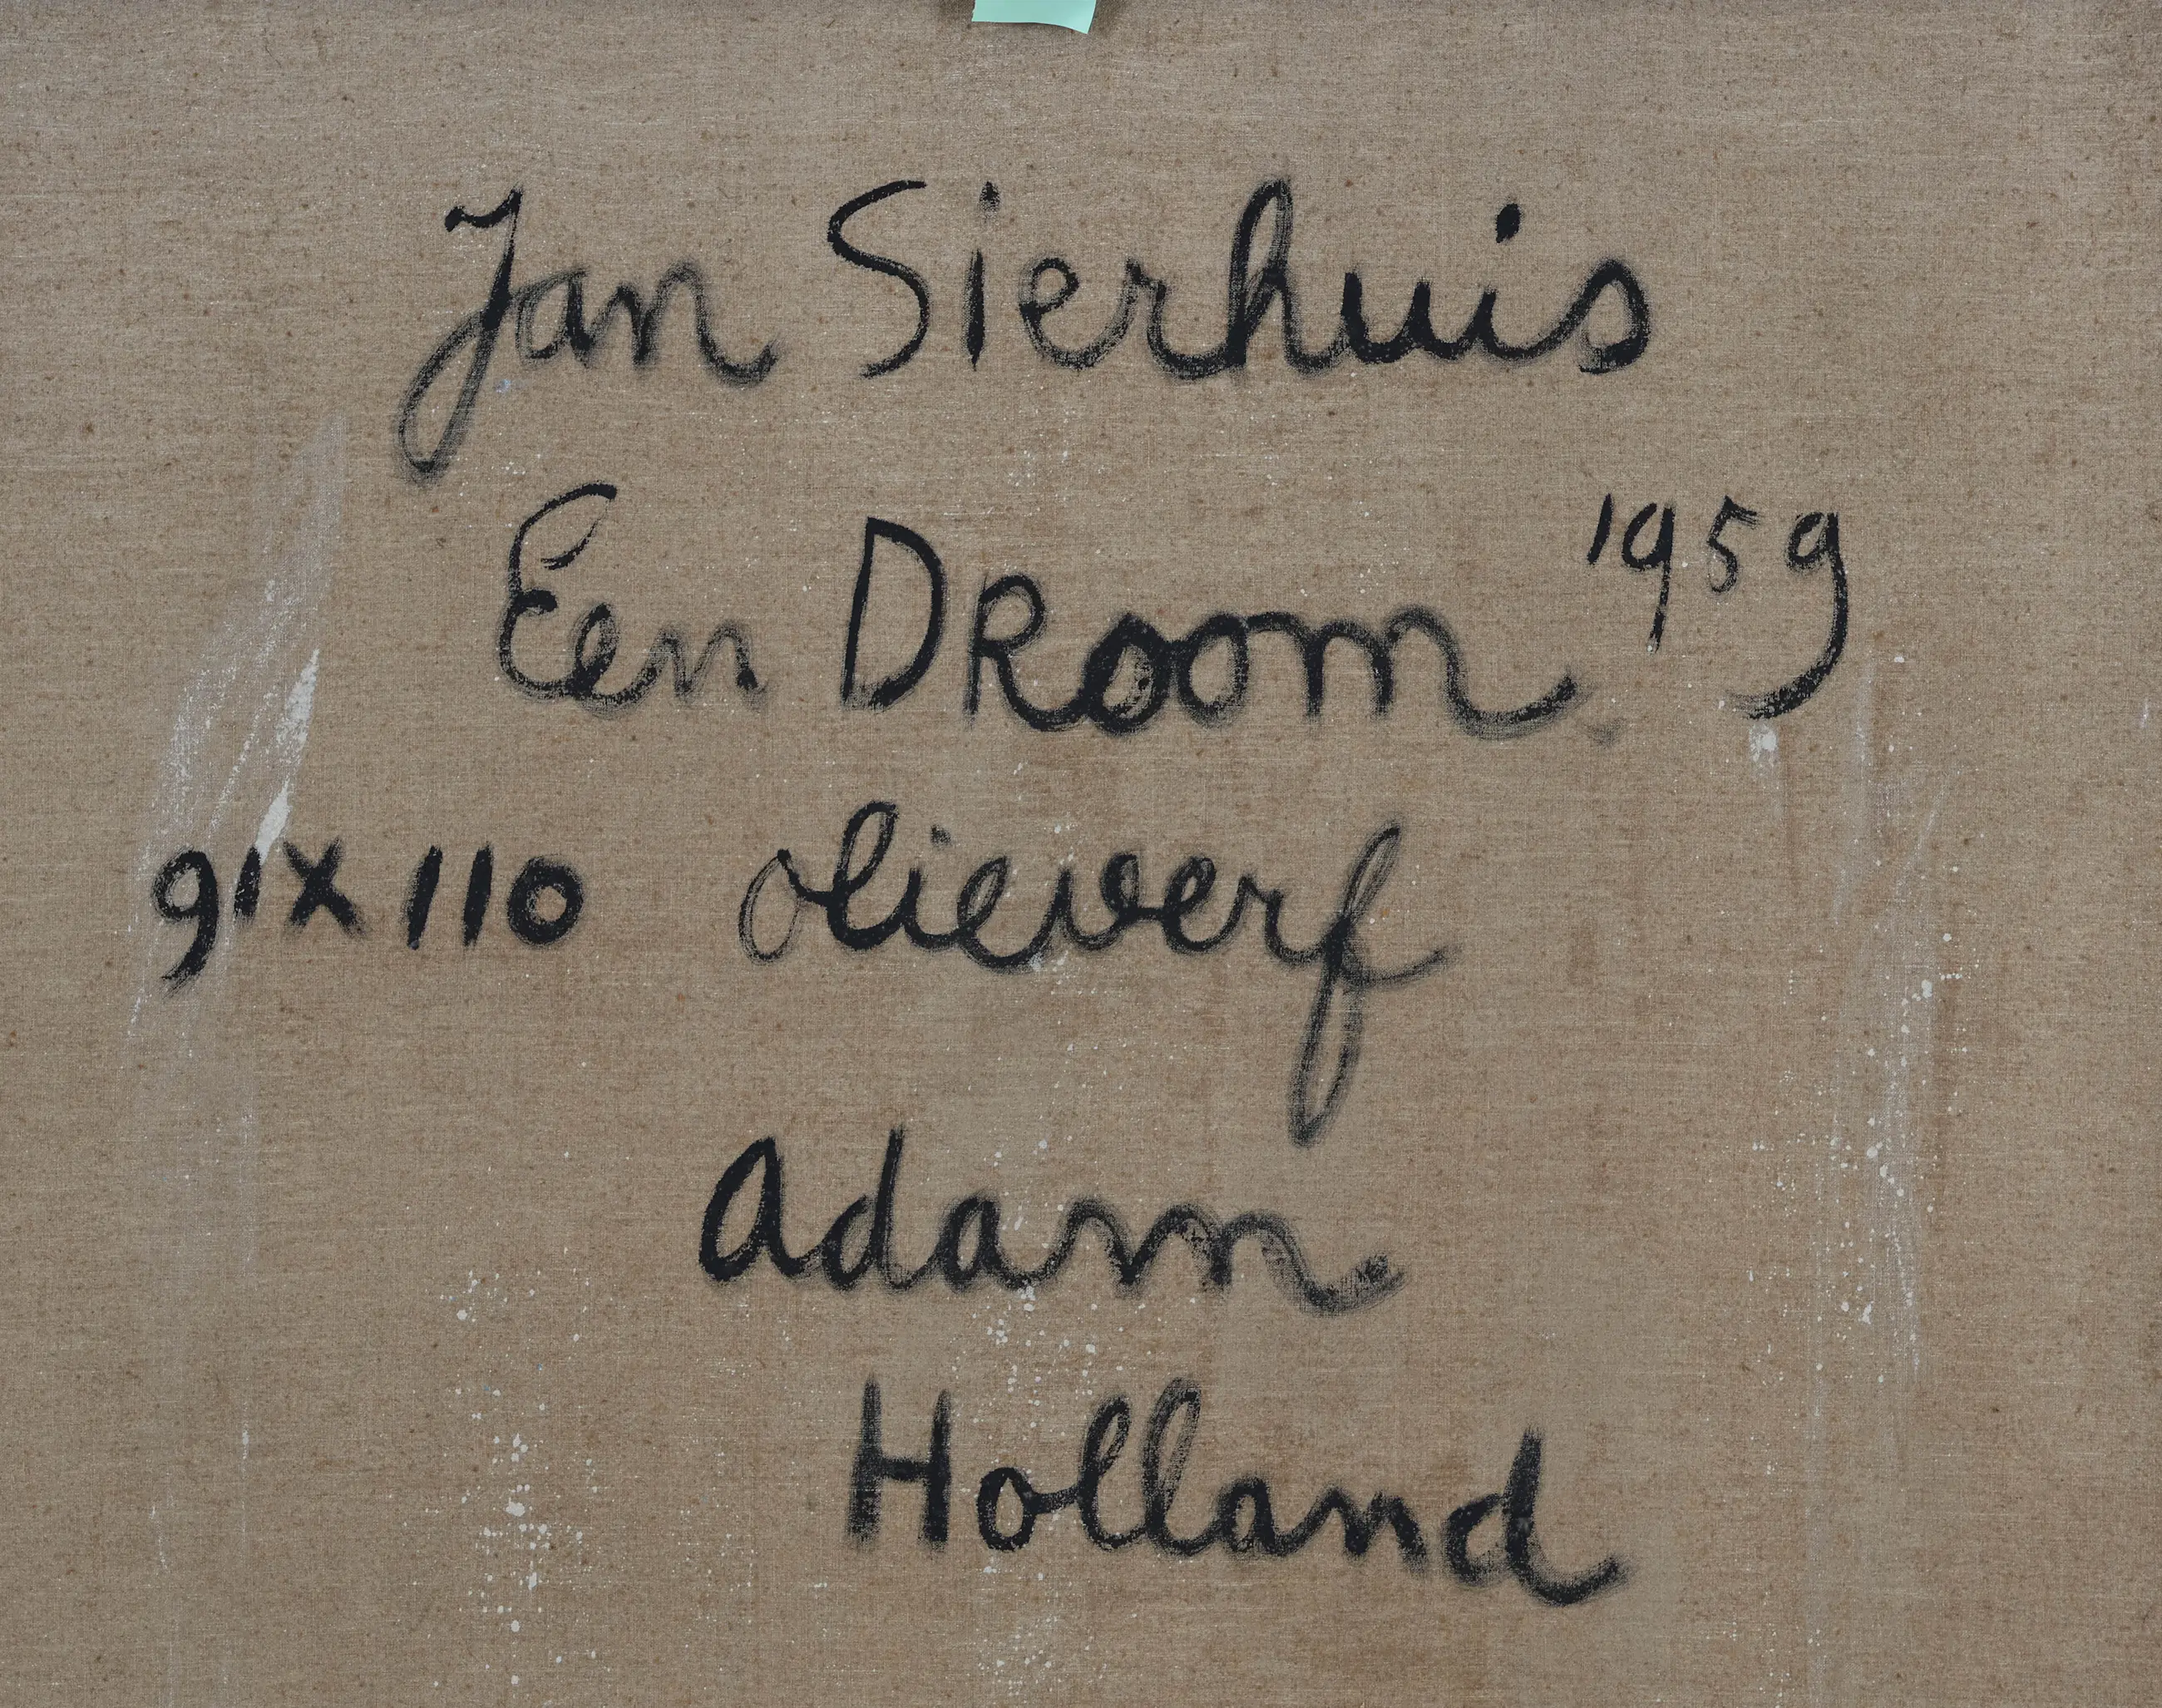 Jan Sierhuis
Een DRoom 1959
91X110 olieverf
Adam
Holland